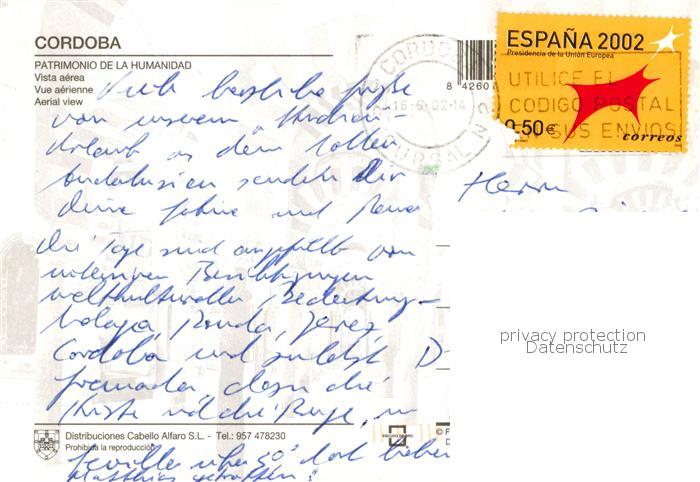 CORDOBA
PATRIMONIO DE LA HUMANIDAD
Vista aérea
Vue aérienne
Aerial view
8 42607
CORDOBA
16-6-02-14
SUCURSAL N 2
ESPAÑA 2002
Presidencia de la Unión Europea
UTILICE EL
CODIGO POSTAL
EN SUS ENVIOS
0.50€
correos
Herrn
Viele herzliche Grüße
von unserem
Urlaub in dem tollen
Andalusien senden Dir
deine Söhne und
die Tage sind angefüllt von
Besichtigungen
weltkultureller Bedeutung -
Malaga, Ronda, Jerez
Cordoba und zuletzt
Granada, dazu die
Küste und die Berge, in
Sevilla über 30° dort haben
Matthias getroffen!
privacy protection
Datenschutz
Distribuciones Cabello Alfaro S.L. - Tel.: 957 478230
Prohibida la reproducción
ESCUDO DE ORO